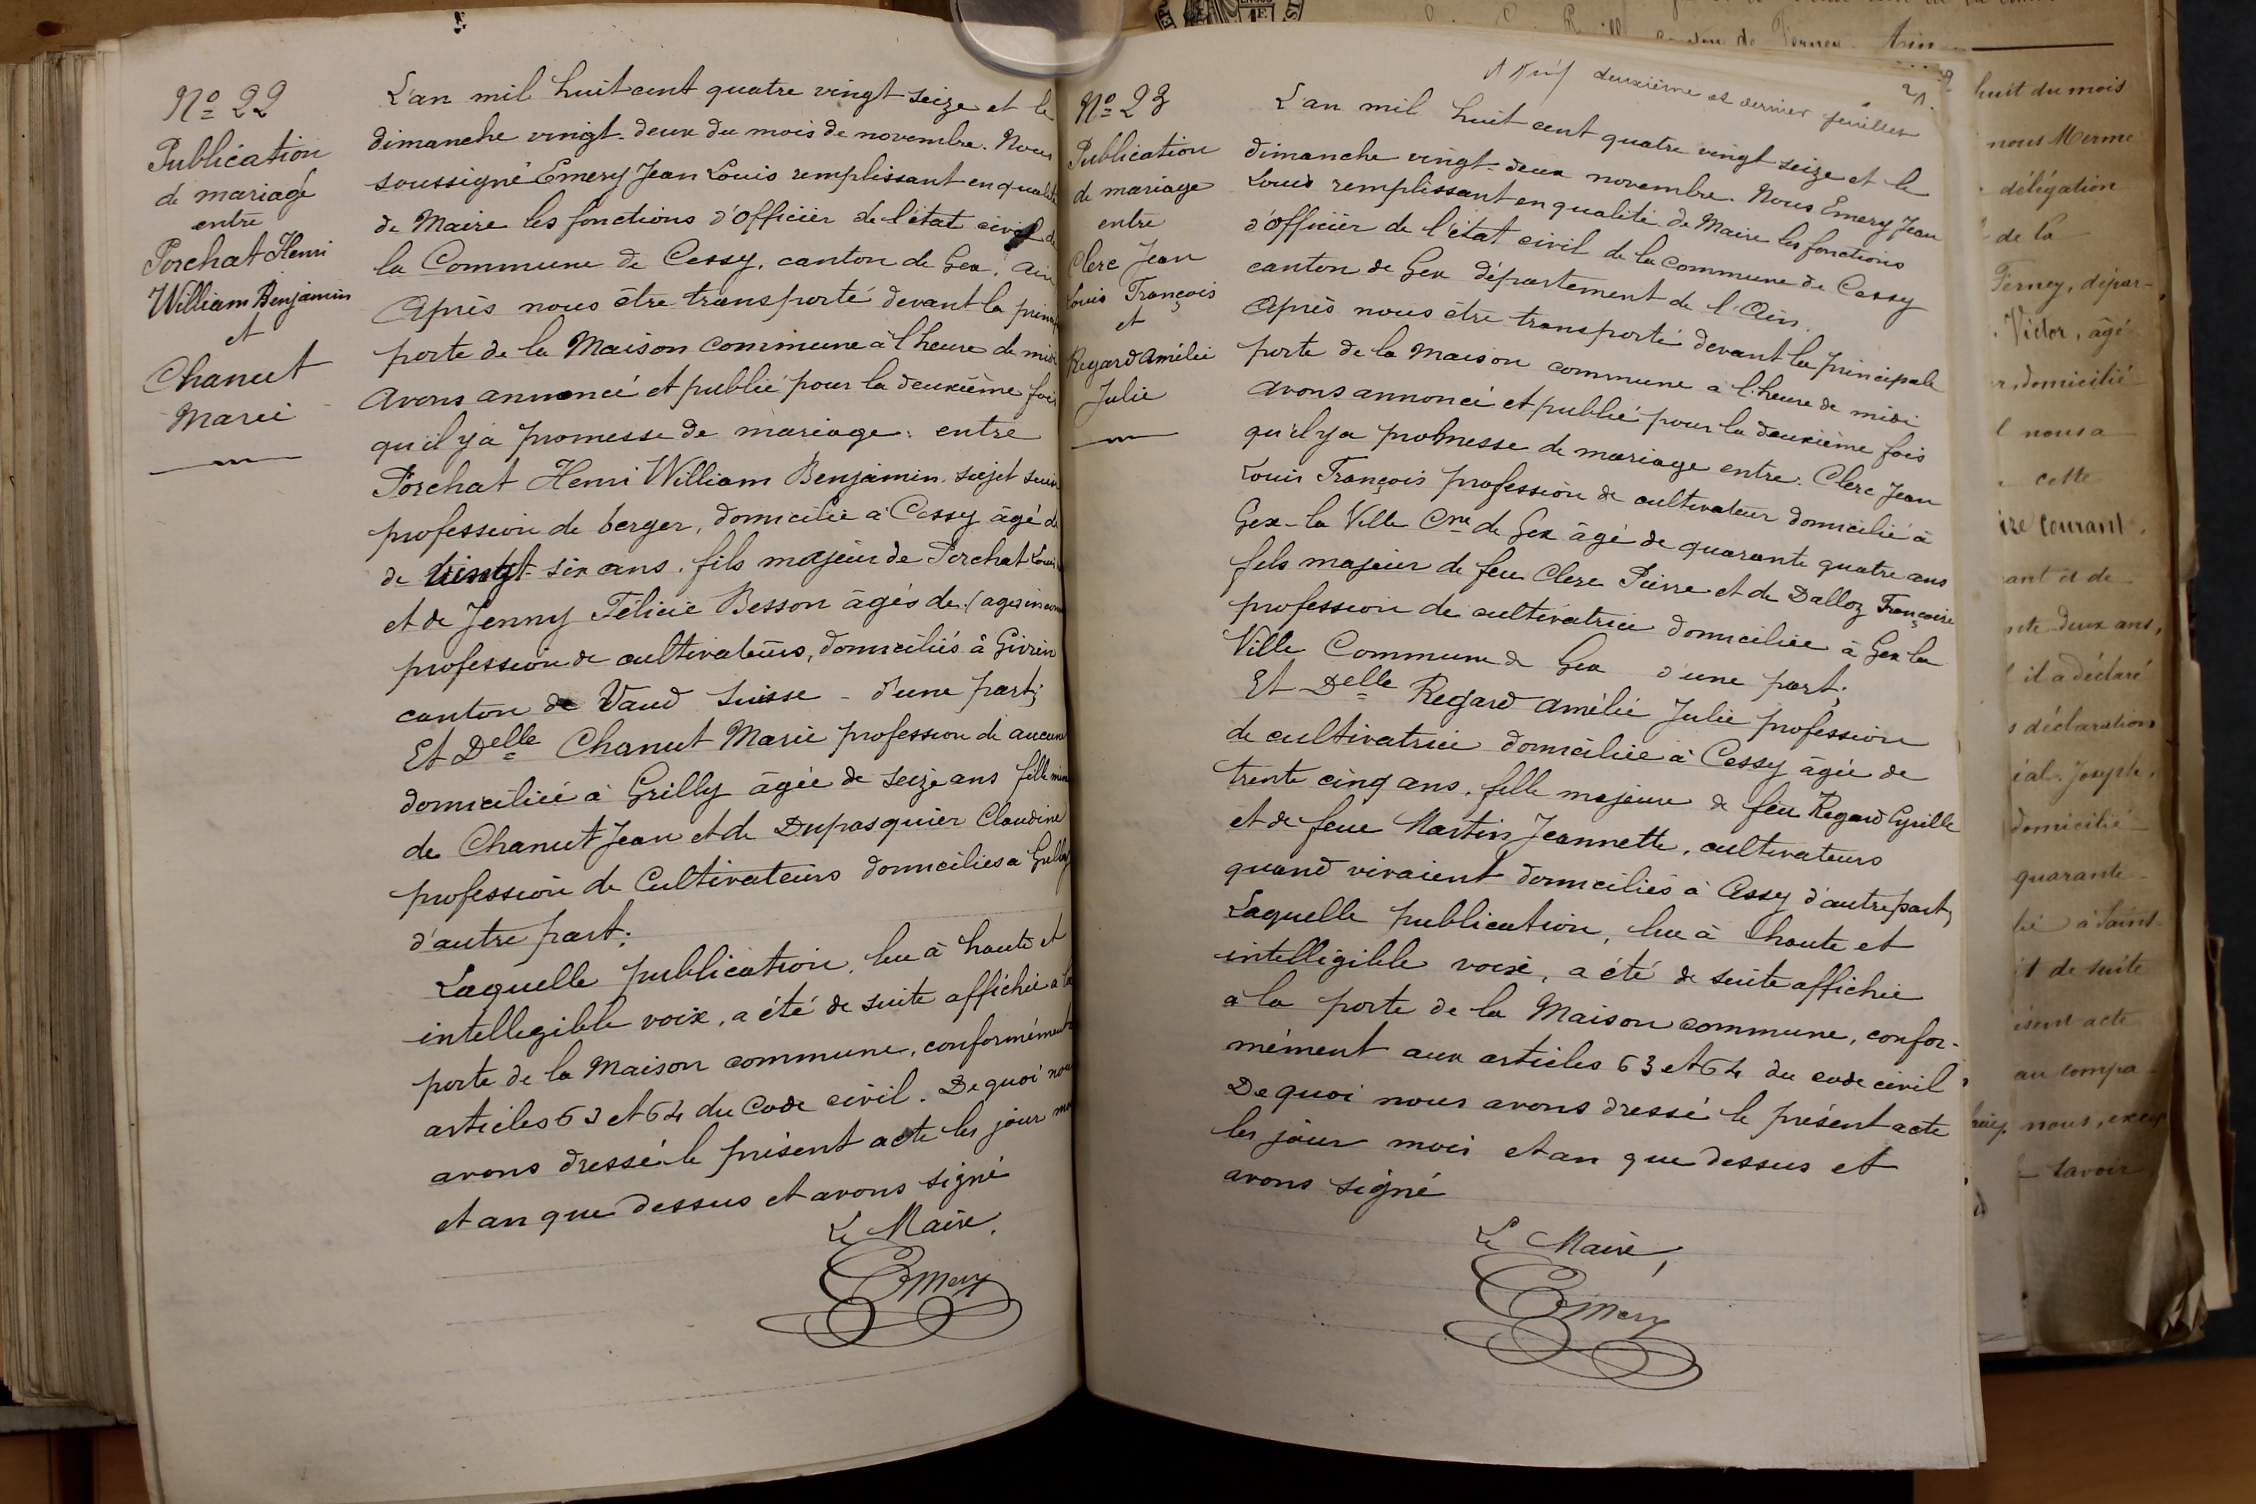 Nº 22
Publication
de mariage
entre
Porchat Henri
William Benjamin
et
Chanut
Marie
L'an mil huit cent quatre vingt seize et le
dimanche vingt-deux du mois de novembre. Nous
soussigné Emery Jean Louis remplissant en qualité
de Maire les fonctions d'Officier de l'état civil de
la Commune de Cessy, canton de Gex, Ain
Après nous être transporté devant la princip
porte de la Maison commune à l'heure de midi
avons annoncé et publié pour la deuxième fois
qu'il y a promesse de mariage: entre
Porchat Henri William Benjamin sujet suis
profession de berger, domicilié à Cessy âgé de
de vingt-six ans. fils majeur de Porchat Louis
et de Jenny Félicie Besson âgés de (ages inconn
profession de cultivateurs, domiciliés à Givrin
canton de Vaud Suisse - d'une part;
Et Delle Chanut Marie profession de aucune
domiciliée à Grilly âgée de seize ans fille min
de Chanut Jean et de Dupasquier Claudine
profession de Cultivateurs domiciliés à Grilly
d'autre part;
Laquelle publication, lue à haute et
intellegible voix, a été de suite affichée à la
porte de la Maison commune, conformément
articles 63 et 64 du Code civil. De quoi nous
avons dressé le présent acte les jour mo
et an que dessus et avons signé
Le Maire.
Emery
Nº 23
Publication
de mariage
entre
Clerc Jean
Louis François
et
Regard Amélie
Julie
deuxième et dernier feuillet
21.
L'an mil huit cent quatre vingt seize et le
dimanche vingt-deux novembre. Nous Emery Jean
Louis remplissant en qualité de Maire les fonctions
d'Officier de l'état civil de la commune de Cessy
canton de Gex département de l'Ain.
Après nous être transporté devant la principale
porte de la maison commune a l'heure de midi
avons annoncé et publié pour la deuxième fois
qu'il y a promesse de mariage entre. Clerc Jean
Louis François profession de cultivateur domicilié à
Gex-la Ville Cne de Gex âgé de quarante quatre ans
fils majeur de feu Clerc Pierre et de Dalloz Françoise
profession de cultivatrice domiciliée à Gex la
Ville Commune de Gex d'une part;
Et Delle Regard Amélie Julie profession
de cultivatrice domiciliée à Cessy âgée de
trente cinq ans. fille majeure de feu Regard Cyrille
et de feue Martin Jeannette, cultivateurs
quand vivaient domiciliés à Cessy d'autre part,
Laquelle publication, lue à haute et
intelligible voix, a été de suite affichée
à la porte de la Maison commune, confor-
mément aux articles 63 et 64 du code civil
De quoi nous avons dressé le présent acte
les jour mois et an que dessus et
avons signé
Le Maire,
Emery
huit du mois
nous Merme
délégation
de la
Ferney, dépar-
Victor, âgé
domicilié
nous a
cette
courant.
ant et de
deux ans,
il a déclaré
déclaration
Joseph,
domicilié
quarante-
à Saint-
it de suite
acte
au compa-
nous, excep
savoir